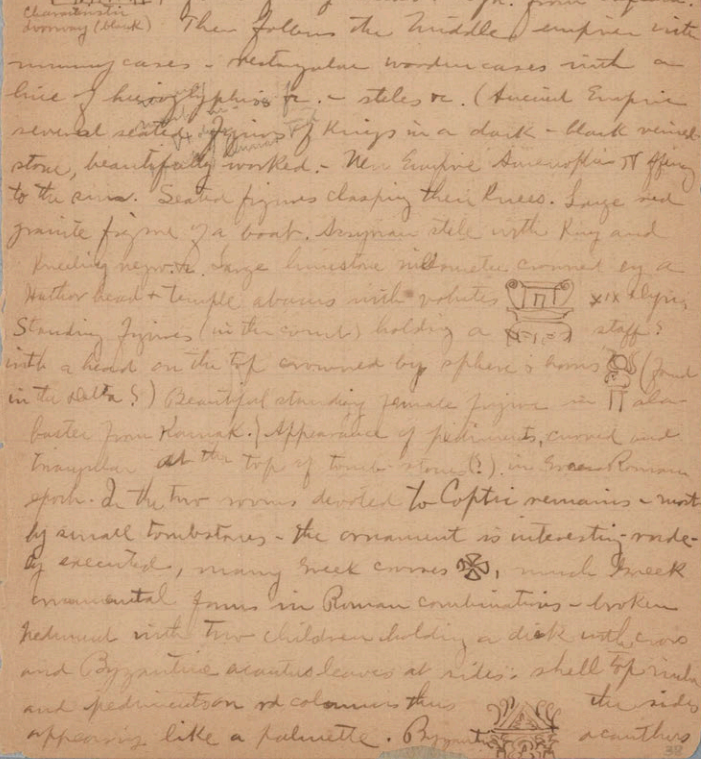 characteristic
doorway (black) Then follows the Middle empire with
mummy cases - rectangular wooden cases with a
line of hieroglyphics &c. - steles &c. (Ancient Empire
several seated figures of Kings in a dark - black veined
stone, beautifully worked. - New Empire Amenophis
to the sun. Seated figures clasping their knees. Large red
granite figure of a boat. Assyrian stele with King and
Kneeling negro &c. Large limestone crowned by a
Hathor head + temple abacus with volutes XIX
Standing figures (in the court) holding a staff?
with a head on the top crowned by sphere & horns (found
in the Delta?) Beautiful standing female figure in ala-
baster from Karnak. Appearance of pediments, curved and
triangular at the top of tomb-stones (?) in Greco-Roman
epoch. In the two rooms devoted to Coptic remains - most-
ly small tombstones - the ornament is interesting - rude-
ly executed, many Greek crosses, much Greek
ornamental forms in Roman combinations - broken
pediment with two children holding a disk with cross
and Byzantine acanthus leaves at sides: shell top
and pediments on columns thus the sides
appearing like a palmette. Byzantine acanthus
38